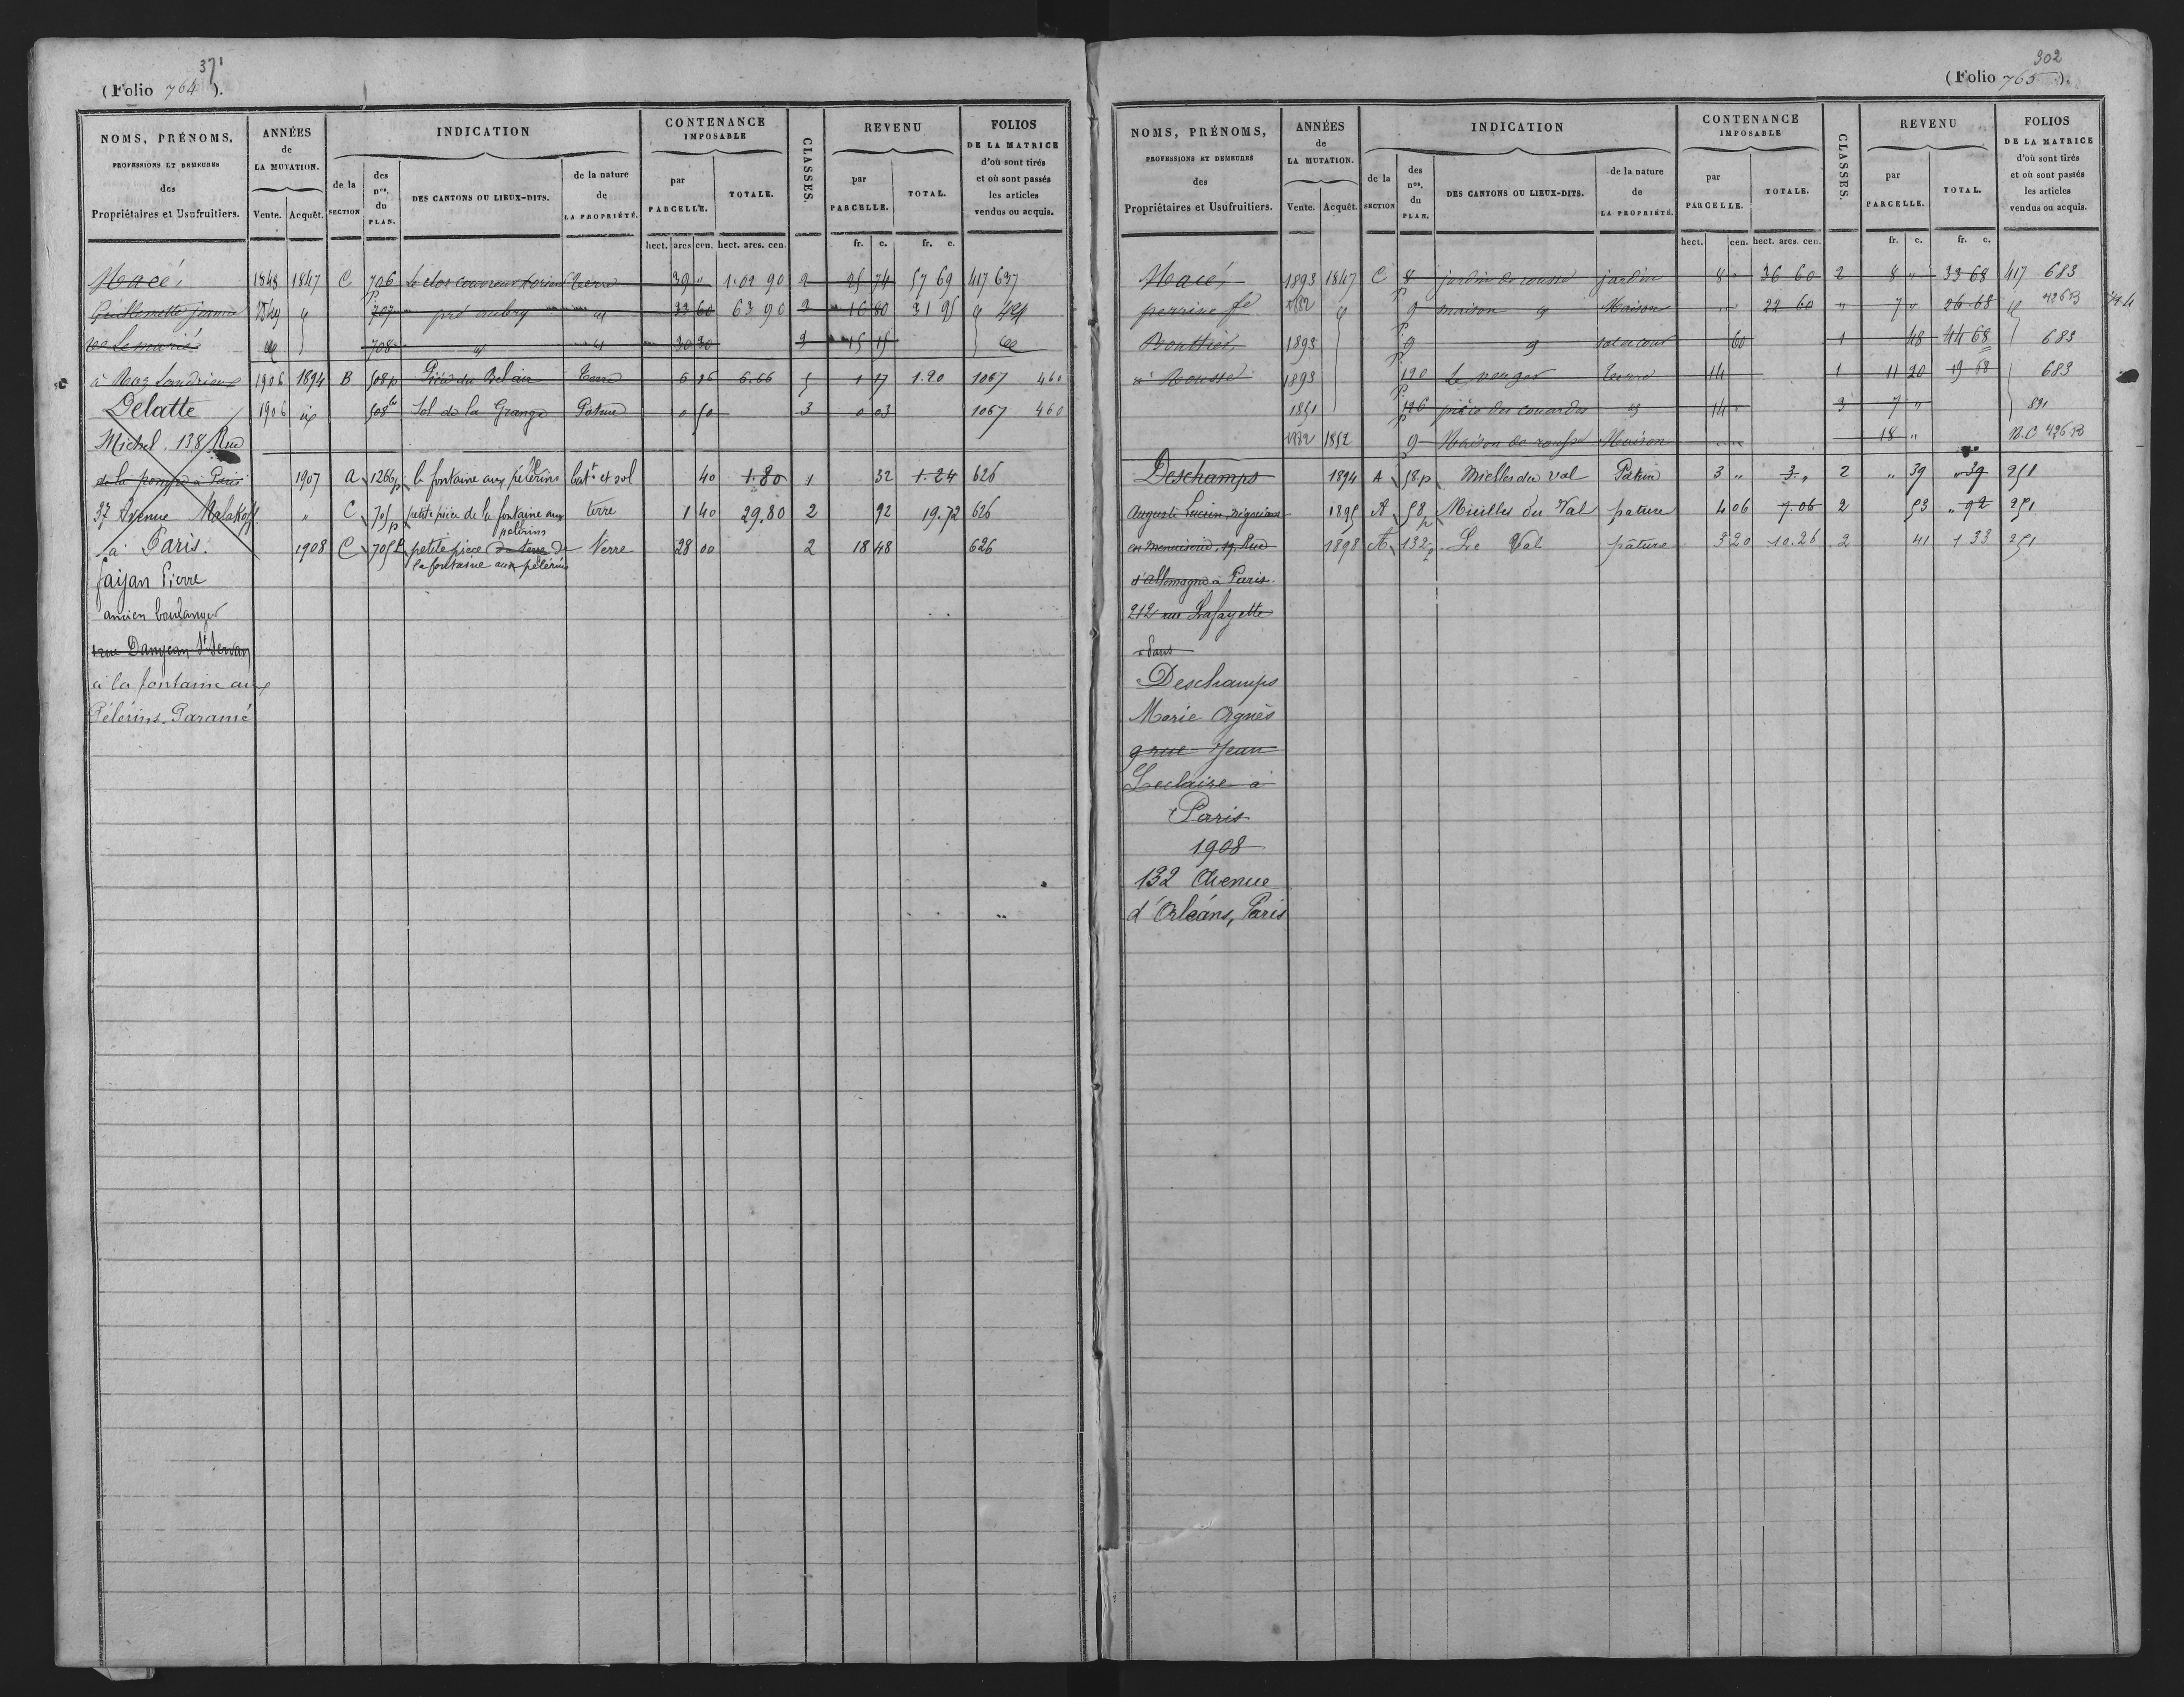 371
(Folio 764).
NOMS, PRÉNOMS, PROFESSIONS ET DEMEURES des Propriétaires et Usufruitiers.
ANNÉES de LA MUTATION. Vente. Acquêt.
INDICATION de la SECTION des nos. du PLAN. DES CANTONS OU LIEUX-DITS. de la nature de LA PROPRIÉTÉ.
CONTENANCE IMPOSABLE par PARCELLE. TOTALE.
CLASSES.
REVENU par PARCELLE. TOTAL.
FOLIOS DE LA MATRICE d'où sont tirés et où sont passés les articles vendus ou acquis.
hect. ares cen. hect. ares. cen. fr. c. fr. c.
Macé, 1848 1847 C 706 Le clos terre 39 " 1.02 90 2 25 74 57 69 417 637
Guillemette jeanne 1849 " 707 p pré aubry " 33 60 63 90 2 16 80 31 95 " 421
Ve Le marié 708 " " 30 30 3 15 15
à 1906 1894 B 508p Pièce du Bel air Terre 6 16 6.66 5 1 17 1.20 1067 460
Delatte 1906 508 bis Sol de la Grange Pature 0 50 3 0 03 1067 460
Michel, 138 Rue
de la pompe à Paris 1907 A 1266p la fontaine aux pélerins bat. et sol 40 1.80 1 32 1.24 626
37 Avenue Malakoff " C 705p petite pièce de la fontaine aux pélerins terre 1 40 29.80 2 92 19.72 626
à Paris. 1908 C 705p petite piece de terre de la fontaine aux pélerins Terre 28 00 2 18 48 626
Jaijan Pierre
ancien boulanger
rue Danjean St Servan
à la fontaine aux
Pélerins. Paramé
302
(Folio 765).
NOMS, PRÉNOMS, PROFESSIONS ET DEMEURES des Propriétaires et Usufruitiers.
ANNÉES de LA MUTATION. Vente. Acquêt.
INDICATION de la SECTION des nos. du PLAN. DES CANTONS OU LIEUX-DITS. de la nature de LA PROPRIÉTÉ.
CONTENANCE IMPOSABLE par PARCELLE. TOTALE.
CLASSES.
REVENU par PARCELLE. TOTAL.
FOLIOS DE LA MATRICE d'où sont tirés et où sont passés les articles vendus ou acquis.
hect. cen. hect. ares. cen. fr. c. fr. c.
Macé, 1893 1847 C 8 p jardin de jardin 8 " 36 60 2 8 " 33 68 417 683
perrine fe 1882 " 9 maison " Maison " 22 60 " 7 " 26.68 " 426 B
1893 9 p " sol et cour 60 1 48 44 68 683
à 1893 120 p Le verger terre 14 1 11 20 19 68 683
1851 126 p pièce des couardes " 14 " 3 7 " 831
1882 1882 9 Maison de Maison 18 " N.C 426 B
Deschamps 1894 A 58.p Mielles du Val Pature 3 " 3. " 2 " 39 " 39 251
Auguste Lucien, 1895 A 58p Mielles du Val pature 4 06 7.06 2 53 " 92 251
en menuiserie, 19, Rue 1898 A 132p Le Val pâture 3 20 10.26 2 41 1 33 251
d'allemagne à Paris.
212 rue Lafayette
à Paris
Deschamps
Marie Agnès
9 rue Jean
Leclaire à
Paris
1908
132 Avenue
d'Orléans, Paris